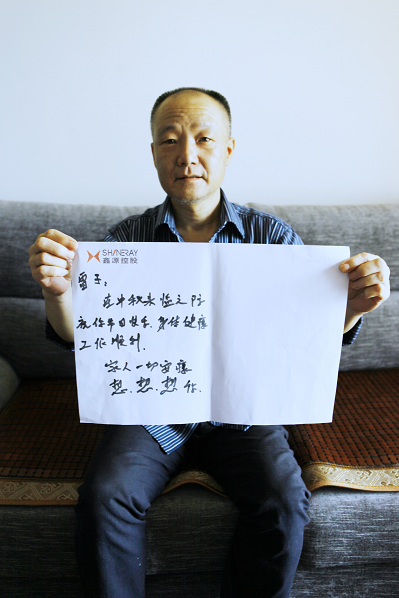 SHINERAY
鑫源控股
雷子:
在中秋来临之际
祝你节日快乐.身体健康
工作顺利.
家人一切安康
想.想.想你.